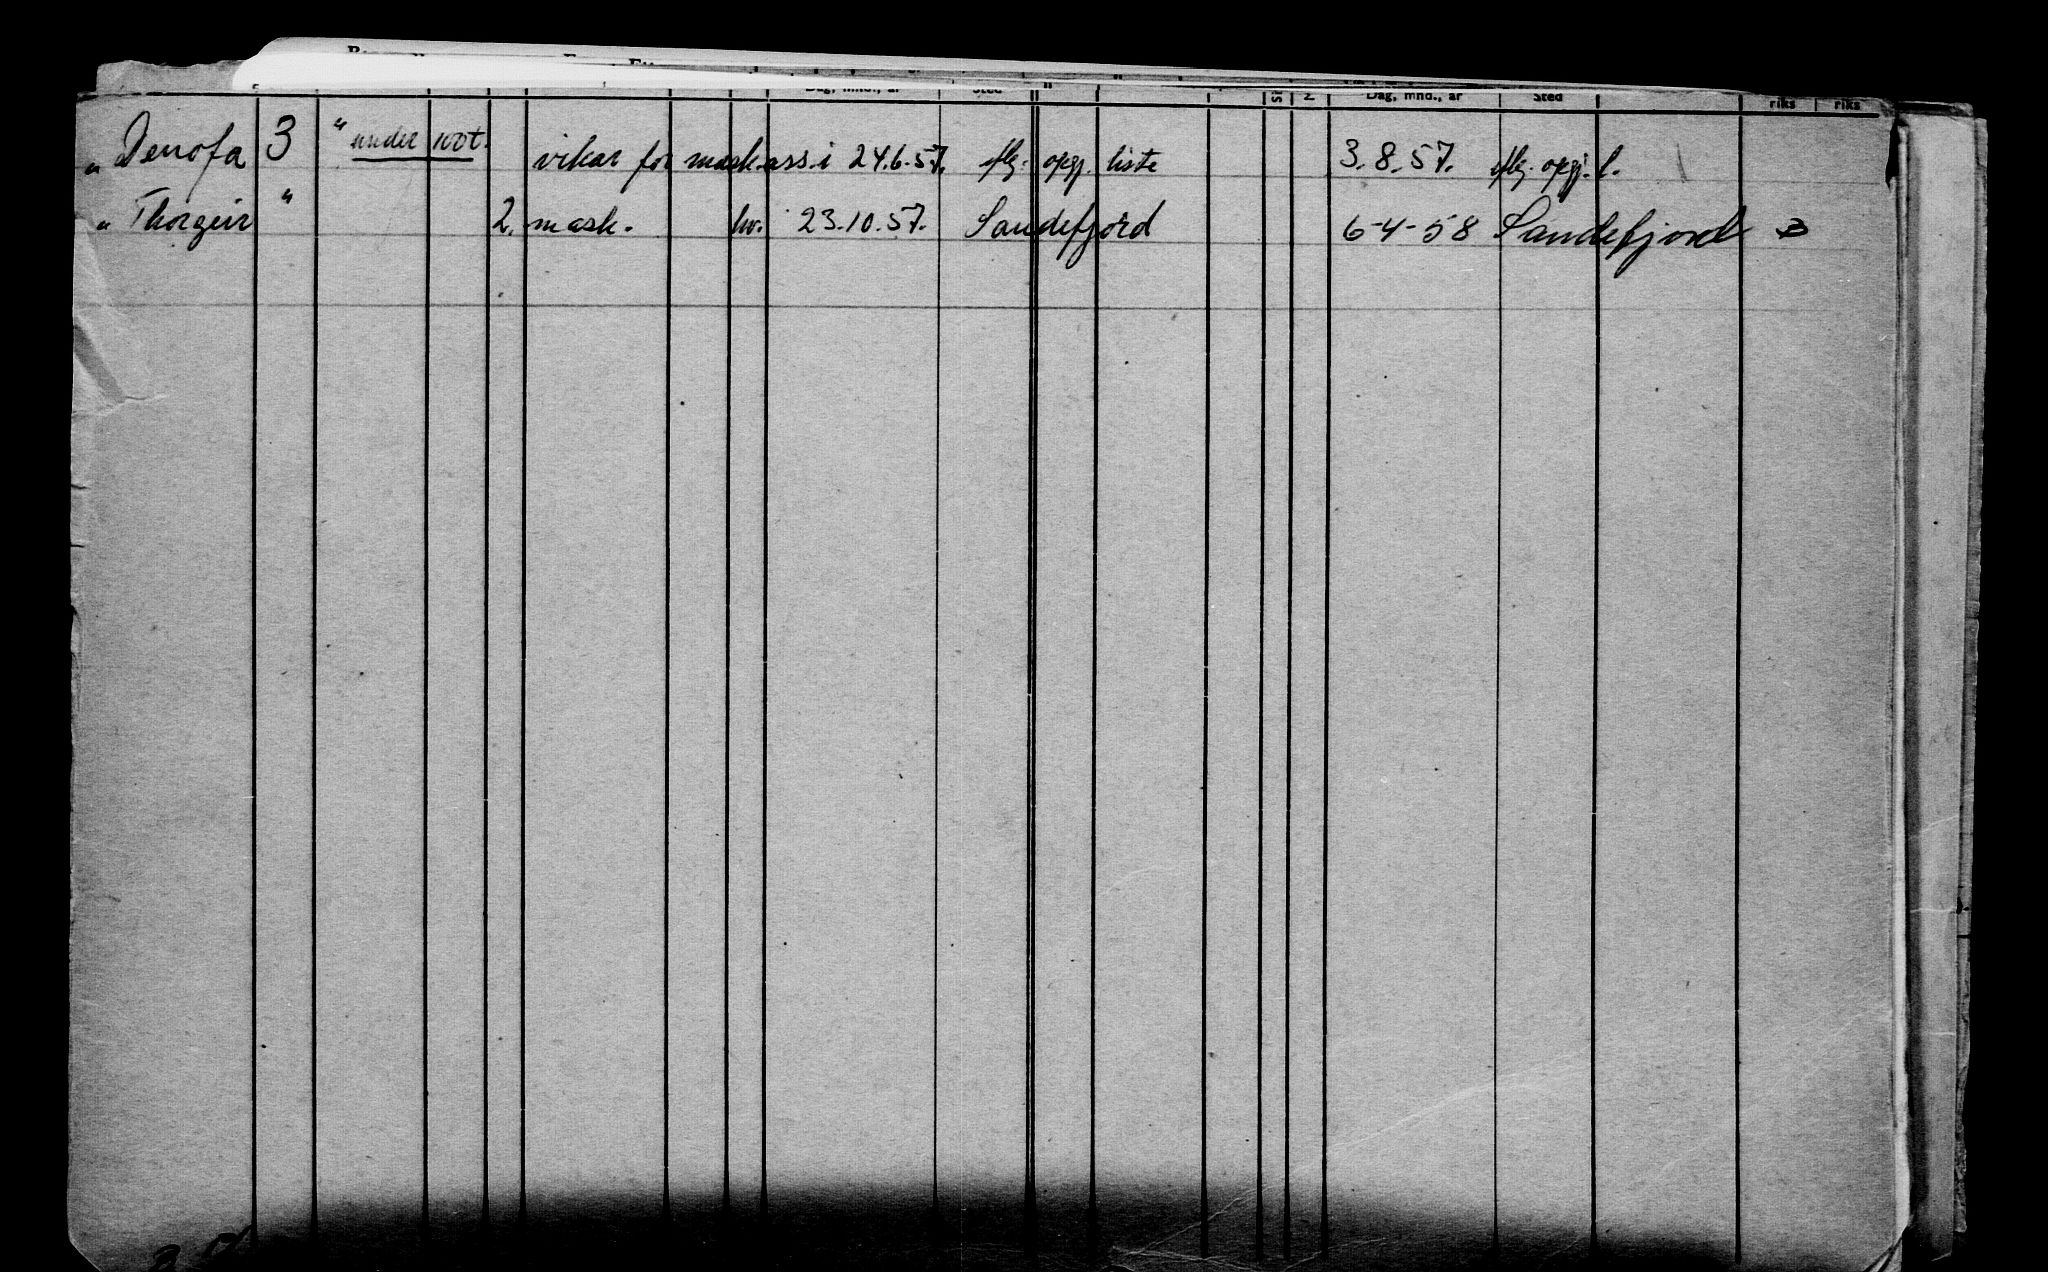 Dag, mnd., år Sted Dag, mnd., år Sted riks riks
" Denofa 3 " under 100t. vikar for mask.ass. i 24.6.57. iflg. oppgj. liste 3.8.57. iflg. oppgj. l.
" Thorgeir " 2. mask. hv. 23.10.57. Sandefjord 6-4-58 Sandefjord